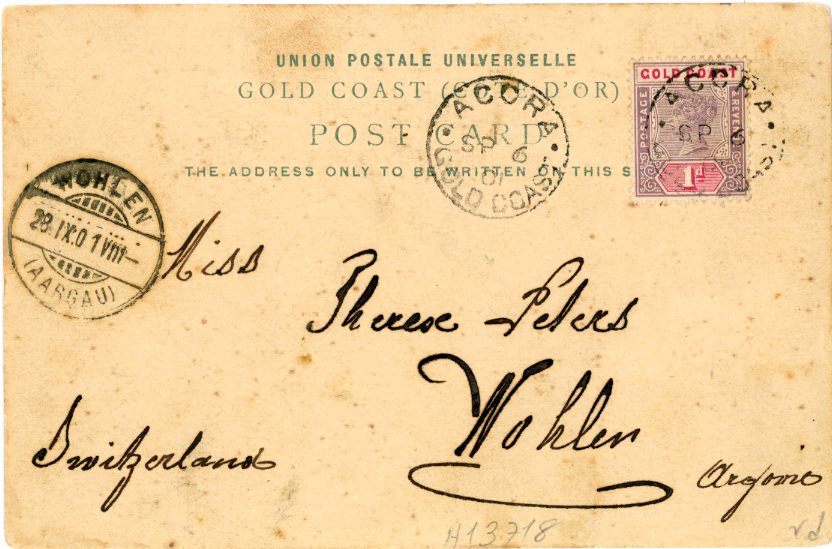 UNION POSTALE UNIVERSELLE
GOLD COAST (CÔTE D'OR)
POST CARD
THE ADDRESS ONLY TO BE WRITTEN ON THIS S
ACCRA
SP 6
01
GOLD COAST
GOLD COAST
POSTAGE & REVE
1d
ACCRA
SP 6
WOHLEN
28.IX.01 VIII—
(AARGAU)
Miss
Therese Peters
Wohlen
Switzerland
Argovie
H13718